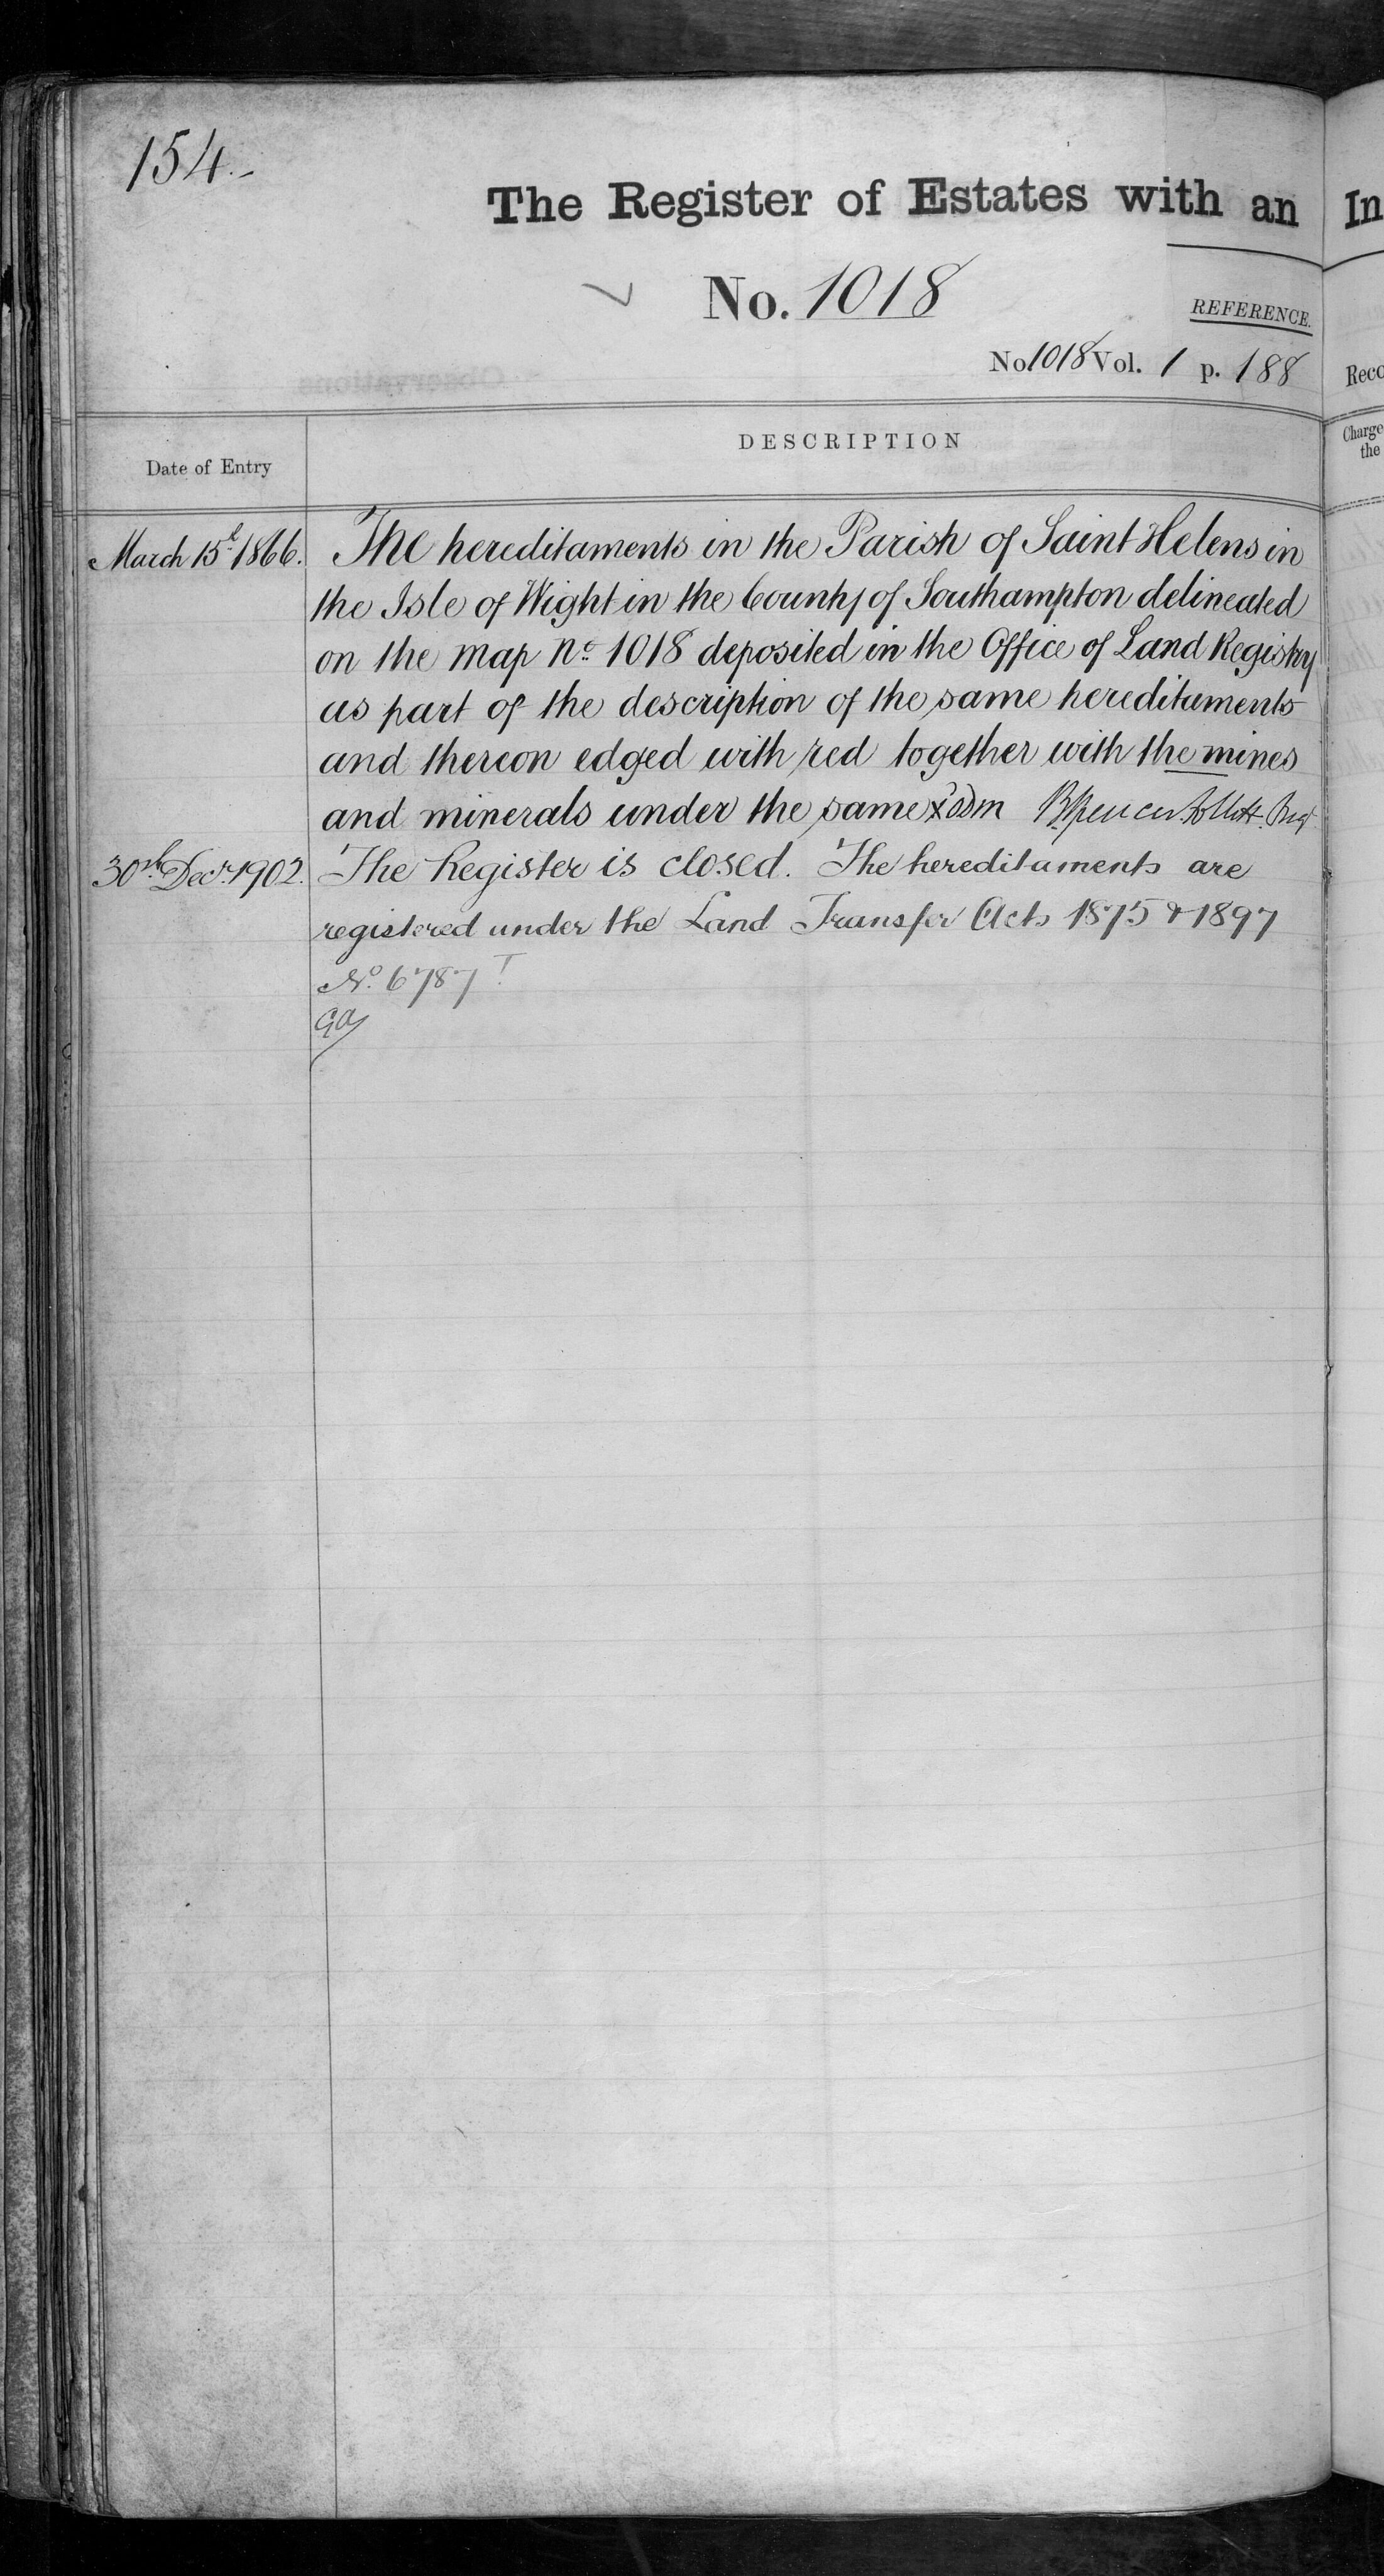 154.
The Register of Estates with an In
No. 1018
REFERENCE.
No 1018 Vol. 1 p. 188
Reco
Date of Entry
DESCRIPTION
Charge
the
March 15t 1866. The hereditaments in the Parish of Saint Helens in
the Isle of Wight in the County of Southampton delineated
on the map No. 1018 deposited in the Office of Land Registry
as part of the description of the same hereditaments
and thereon edged with red together with the mines
and minerals under the same
30th Decr. 1902. The Register is closed. The hereditaments are
registered under the Land Transfer Acts 1875 & 1897
No. 6787